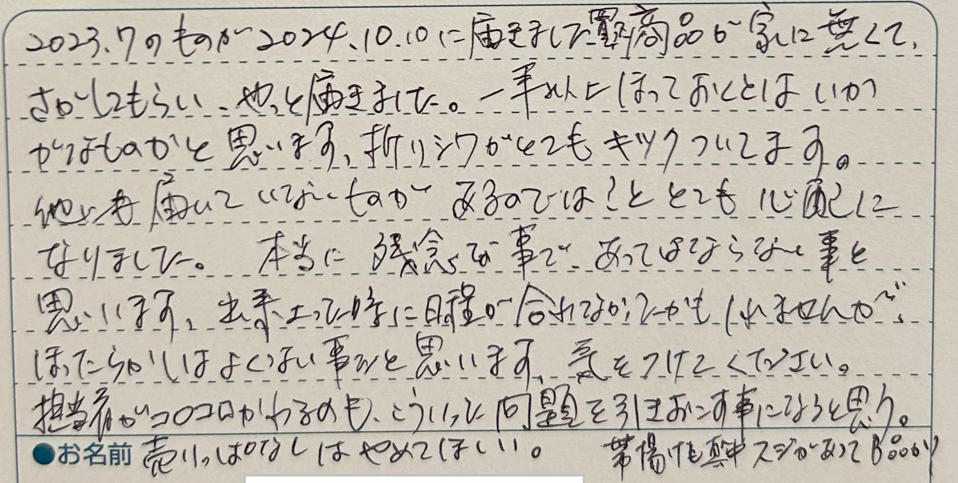 2023.7のものが2024.10.10に届きました商品が家に無くて、
さがしてもらい、やっと届きました。一年以上ほっておくとはいか
がなものかと思います、折りシワがとてもキツクついてます。
他にも届いていないものがあるのでは?ととても心配に
なりました。本当に残念な事で、あってはならない事と
思います、出来上った時に日程が合わなかったかもしれませんが、
ほったらかしはよくない事だと思います、気をつけてください。
担当者がコロコロかわるのも、こういった問題を引きおこす事になると思う。
●お名前 売りっぱなしはやめてほしい。 帯揚げも真中スジがあって